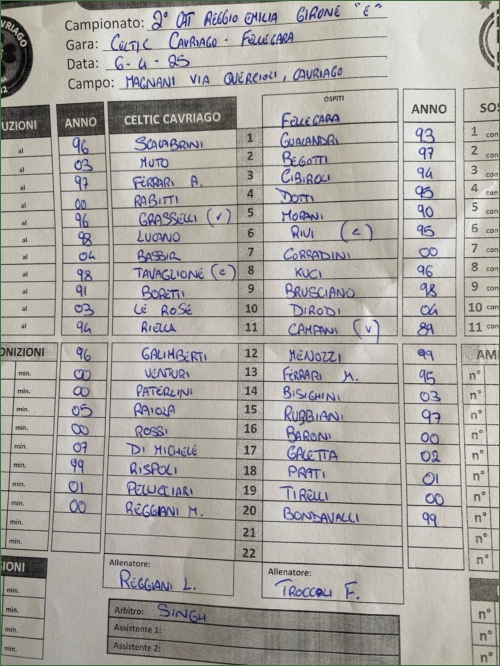 Campionato: 2° CAT REGGIO EMILIA GIRONE "E"
Gara: CELTIC CAVRIAGO - FELLEGARA
Data: 6-4-25
Campo: MAGNANI VIA QUERCIOLI, CAVRIAGO
UZIONI ANNO CELTIC CAVRIAGO OSPITI FELLEGARA ANNO SO
al 96 SCALABRINI 1 GUALANDRI 93 1 con
al 03 MUTO 2 BEGOTTI 97 2 con
al 97 FERRARI A. 3 CIBIROLI 94 3 con
al 00 RABITTI 4 DOTTI 95 4 con
al 96 GRASSELLI (V) 5 MORANI 90 5 con
al 98 LUGANO 6 RIVI (C) 95 6 con
al 04 BASSIR 7 CORRADINI 00 7 con
al 98 TAVAGLIONE (C) 8 KUCI 96 8 con
al 91 BORETTI 9 BRUSCIANO 98 9 con
al 03 LE ROSE 10 DIRODI 04 10 con
al 94 RIELLA 11 CAMPANI (V) 89 11 con
ONIZIONI 96 GALIMBERTI 12 MENOZZI 99 AM
min. 00 VENTURI 13 FERRARI M. 95 n°
min. 00 PATERLINI 14 BISIGHINI 03 n°
min. 05 RAIOLA 15 RUBBIANI 97 n°
min. 00 ROSSI 16 BARONI 00 n°
min. 07 DI MICHELE 17 GALETTA 02 n°
min. 99 RISPOLI 18 PRATI 01 n°
min. 01 PELUCIARI 19 TIRELLI 00 n°
min. 00 REGGIANI M. 20 BONDAVALLI 99 n°
min. 21 n°
22
IONI Allenatore: REGGIANI L. Allenatore: TROCCOLI F.
min. Arbitro: SINGH n°
min. Assistente 1: n°
min. Assistente 2: n°